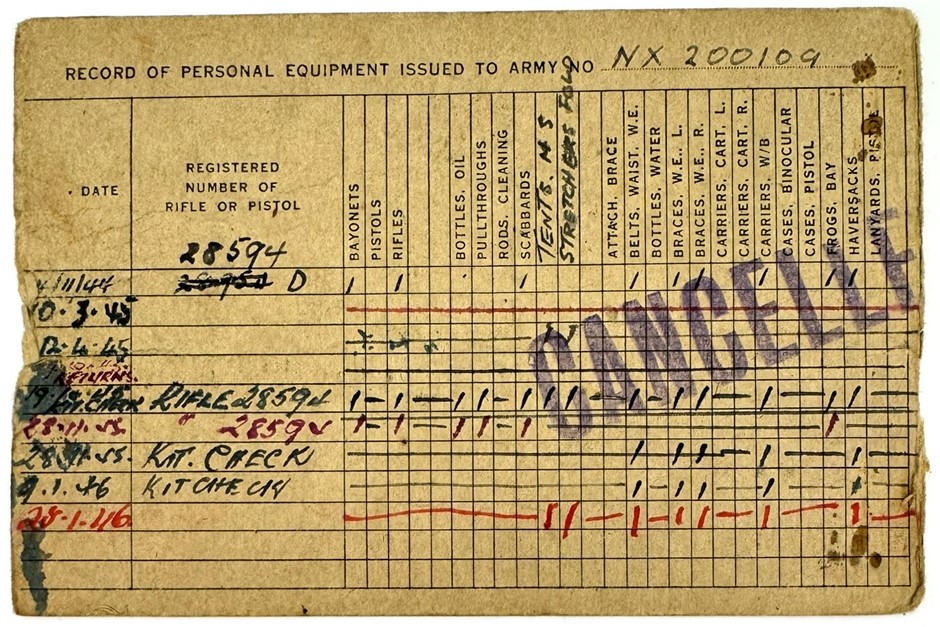 RECORD OF PERSONAL EQUIPMENT ISSUED TO ARMY NO NX 200109
DATE
REGISTERED
NUMBER OF
RIFLE OR PISTOL
28594
BAYONETS
PISTOLS
RIFLES
BOTTLES, OIL
PULLTHROUGHS
RODS, CLEANING
SCABBARDS
TENTS. M S
STRETCHERS FOLD
ATTACH, BRACE
BELTS, WAIST, W.E.
BOTTLES, WATER
BRACES, W.E., L.
BRACES, W.E., R.
CARRIERS, CART. L.
CARRIERS, CART. R.
CARRIERS, W/B
CASES, BINOCULAR
CASES, PISTOL
FROGS, BAY
HAVERSACKS
LANYARDS, PISTOL
4/11/44 D
10.3.45
12.4.45
RETURNS.
RIFLE 28594
28.11.45. " 28594
28.11.45. KIT. CHECK
9.1.46 KIT CHECK
28.1.46
CANCELLE